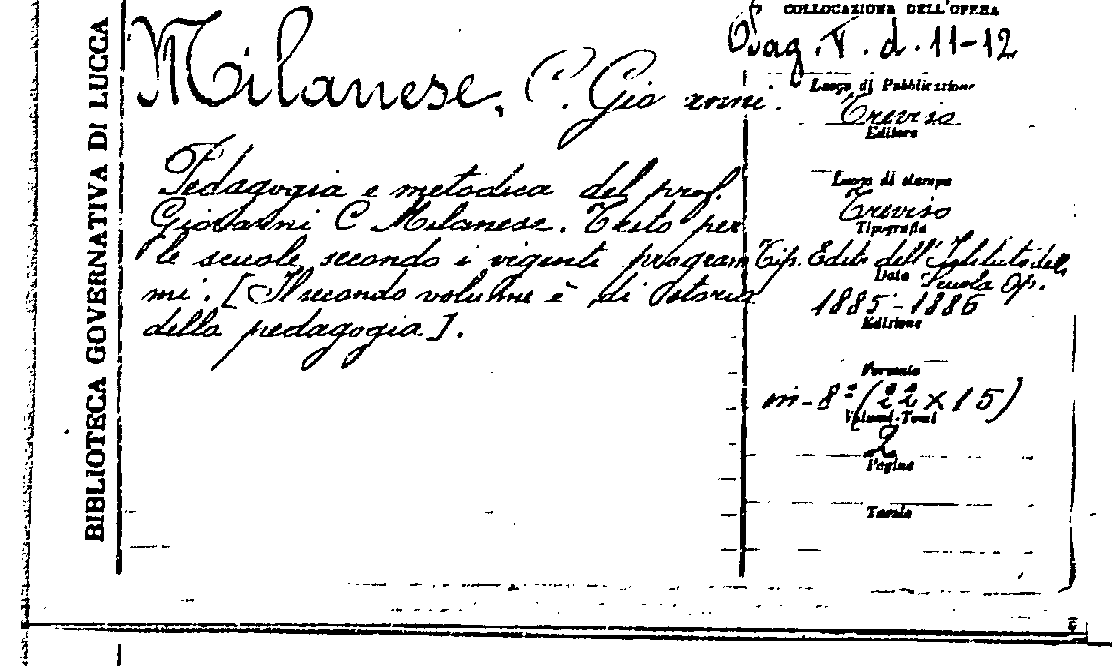 BIBLIOTECA GOVERNATIVA DI LUCCA
Milanese, C. Giovanni.
Pedagogia e metodica del prof.
Giovanni C Milanese. Testo per
le scuole secondo i vigenti program
mi. [Il secondo volume è di storia
della pedagogia].
COLLOCAZIONE DELL'OPERA
Pag. V. d. 11-12
Luogo di Pubblicazione
Treviso
Editore
Luogo di stampa
Treviso
Tipografia
Tip. Edit. dell'Istituto dell
Data
Scuola Op.
1885-1886
Edizione
Formato
in-8° (22 x 15)
Volumi-Tomi
2
Pagine
Tavole